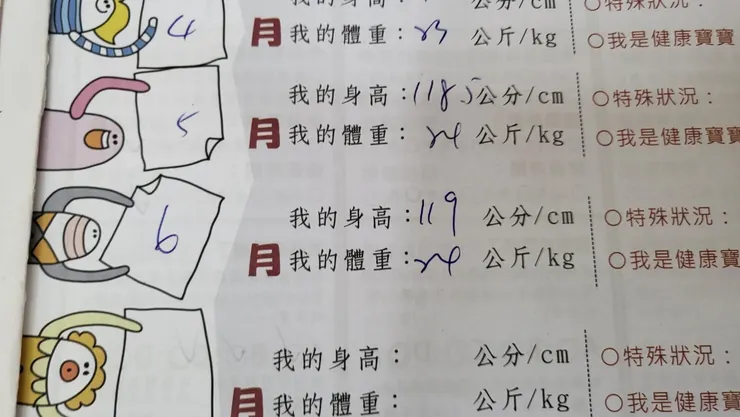 公分/cm ○特殊狀況：
4 月 我的體重：23 公斤/kg ○我是健康寶寶
我的身高：118.5 公分/cm ○特殊狀況：
5 月 我的體重：24 公斤/kg ○我是健康寶寶
我的身高：119 公分/cm ○特殊狀況：
6 月 我的體重：24 公斤/kg ○我是健康寶寶
我的身高： 公分/cm ○特殊狀況：
月 我的體重： 公斤/kg ○我是健康寶寶